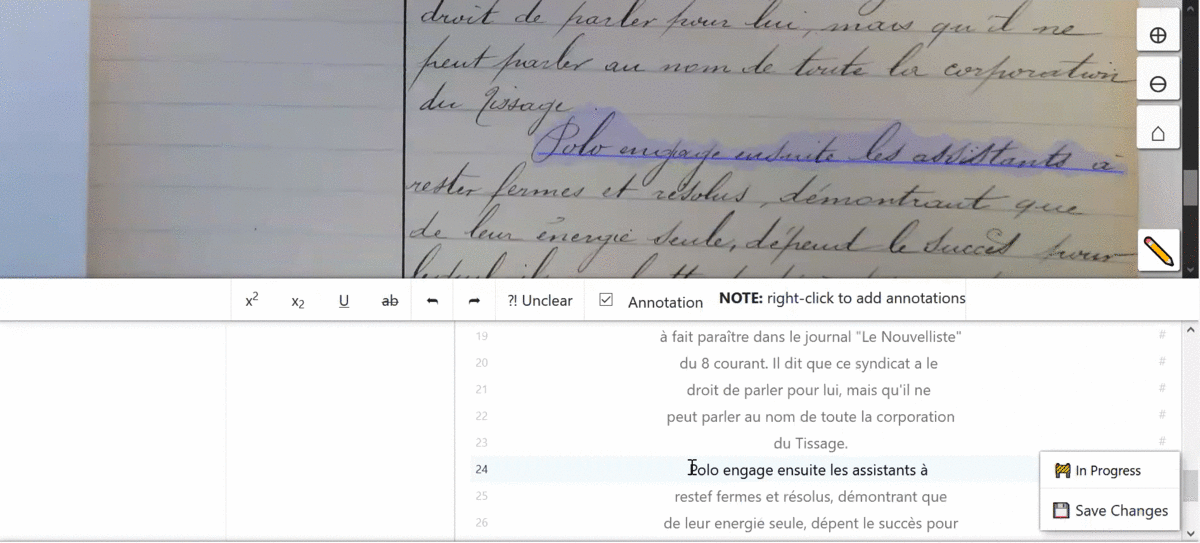 droit de parler pour lui, mais qu'il ne
peut parler au nom de toute la corporation
du Tissage
Polo engage ensuite les assistants à
rester fermes et résolus, démontrant que
de leur énergie seule, dépend le succès pour
x²
x₂
U
ab
?! Unclear
Annotation
NOTE: right-click to add annotations
19 à fait paraître dans le journal "Le Nouvelliste" #
20 du 8 courant. Il dit que ce syndicat a le #
21 droit de parler pour lui, mais qu'il ne #
22 peut parler au nom de toute la corporation #
23 du Tissage. #
24 Polo engage ensuite les assistants à
25 restef fermes et résolus, démontrant que
26 de leur energie seule, dépent le succès pour
In Progress
Save Changes